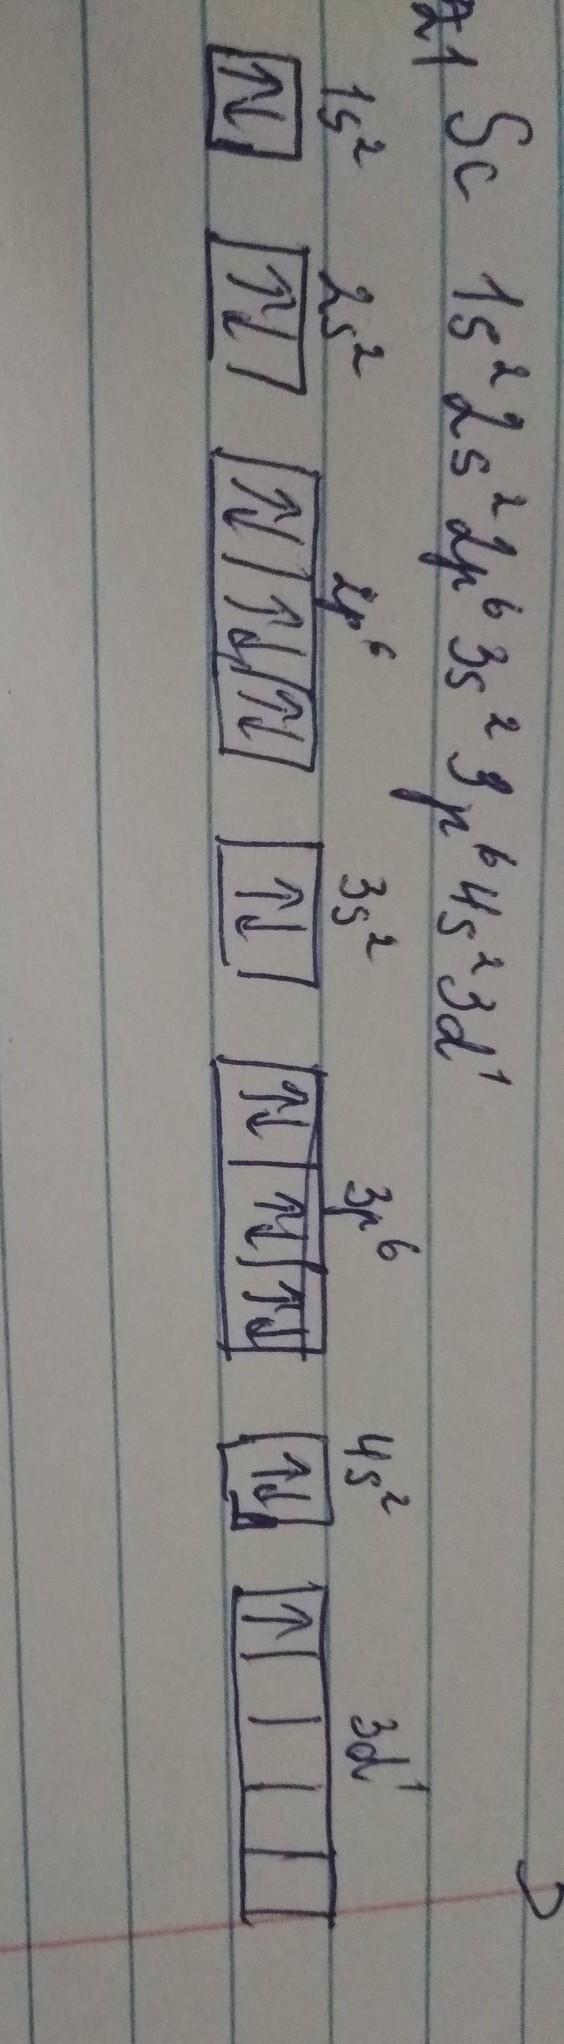 21 Sc 1s² 2s² 2p⁶ 3s² 3p⁶ 4s² 3d¹
1s² 2s² 2p⁶ 3s² 3p⁶ 4s² 3d¹
↑↓ ↑↓ ↑↓ ↑↓ ↑↓ ↑↓ ↑↓ ↑↓ ↑↓ ↑↓ ↑